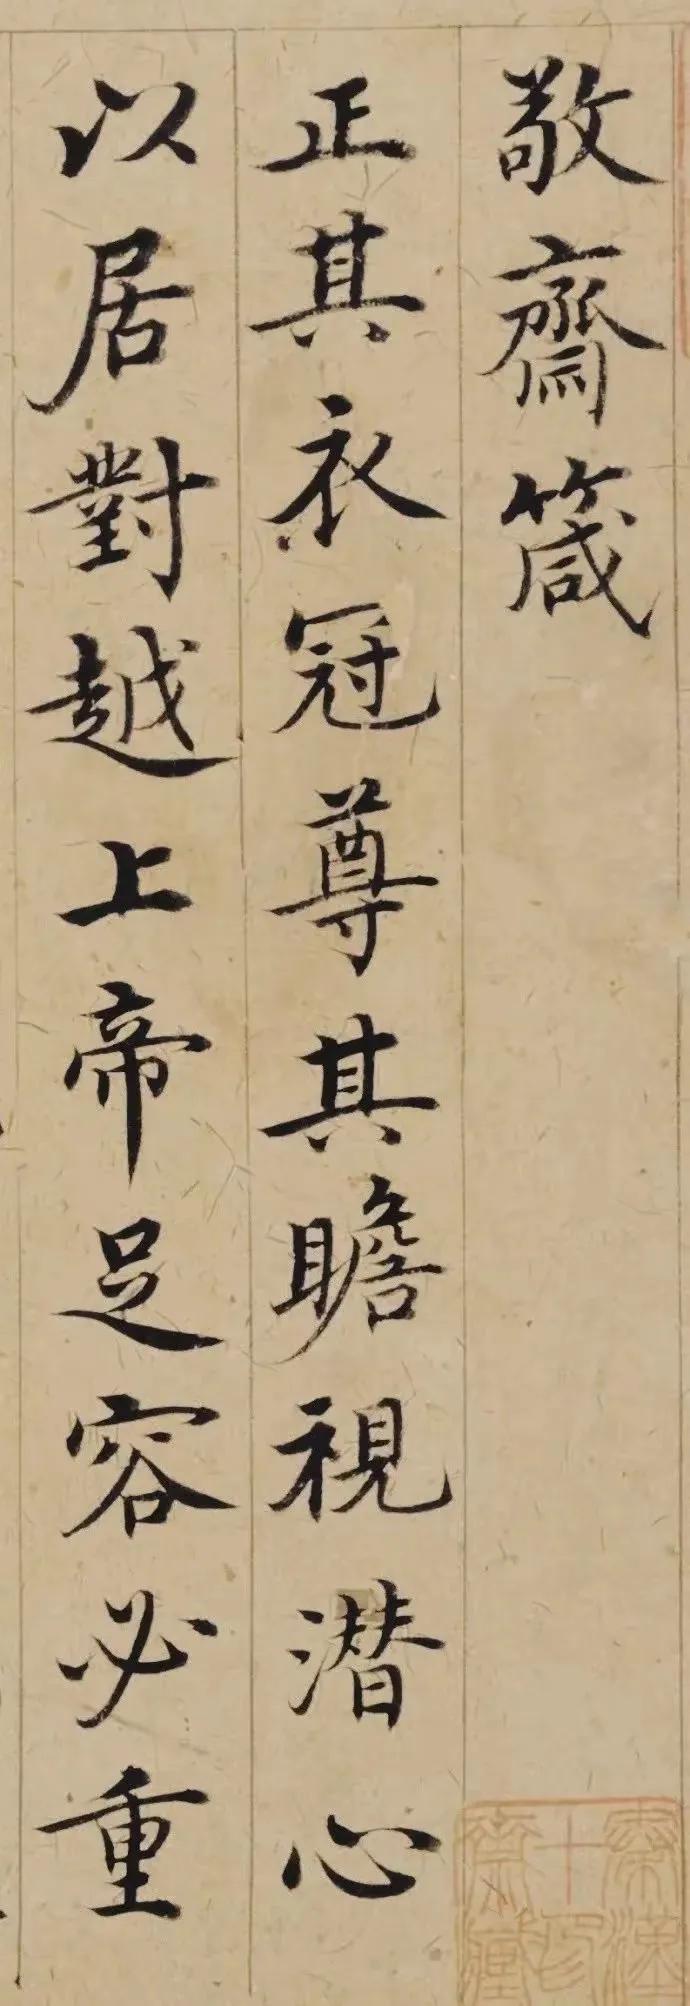 敬齋箴
正其衣冠尊其瞻視潛心
以居對越上帝足容必重